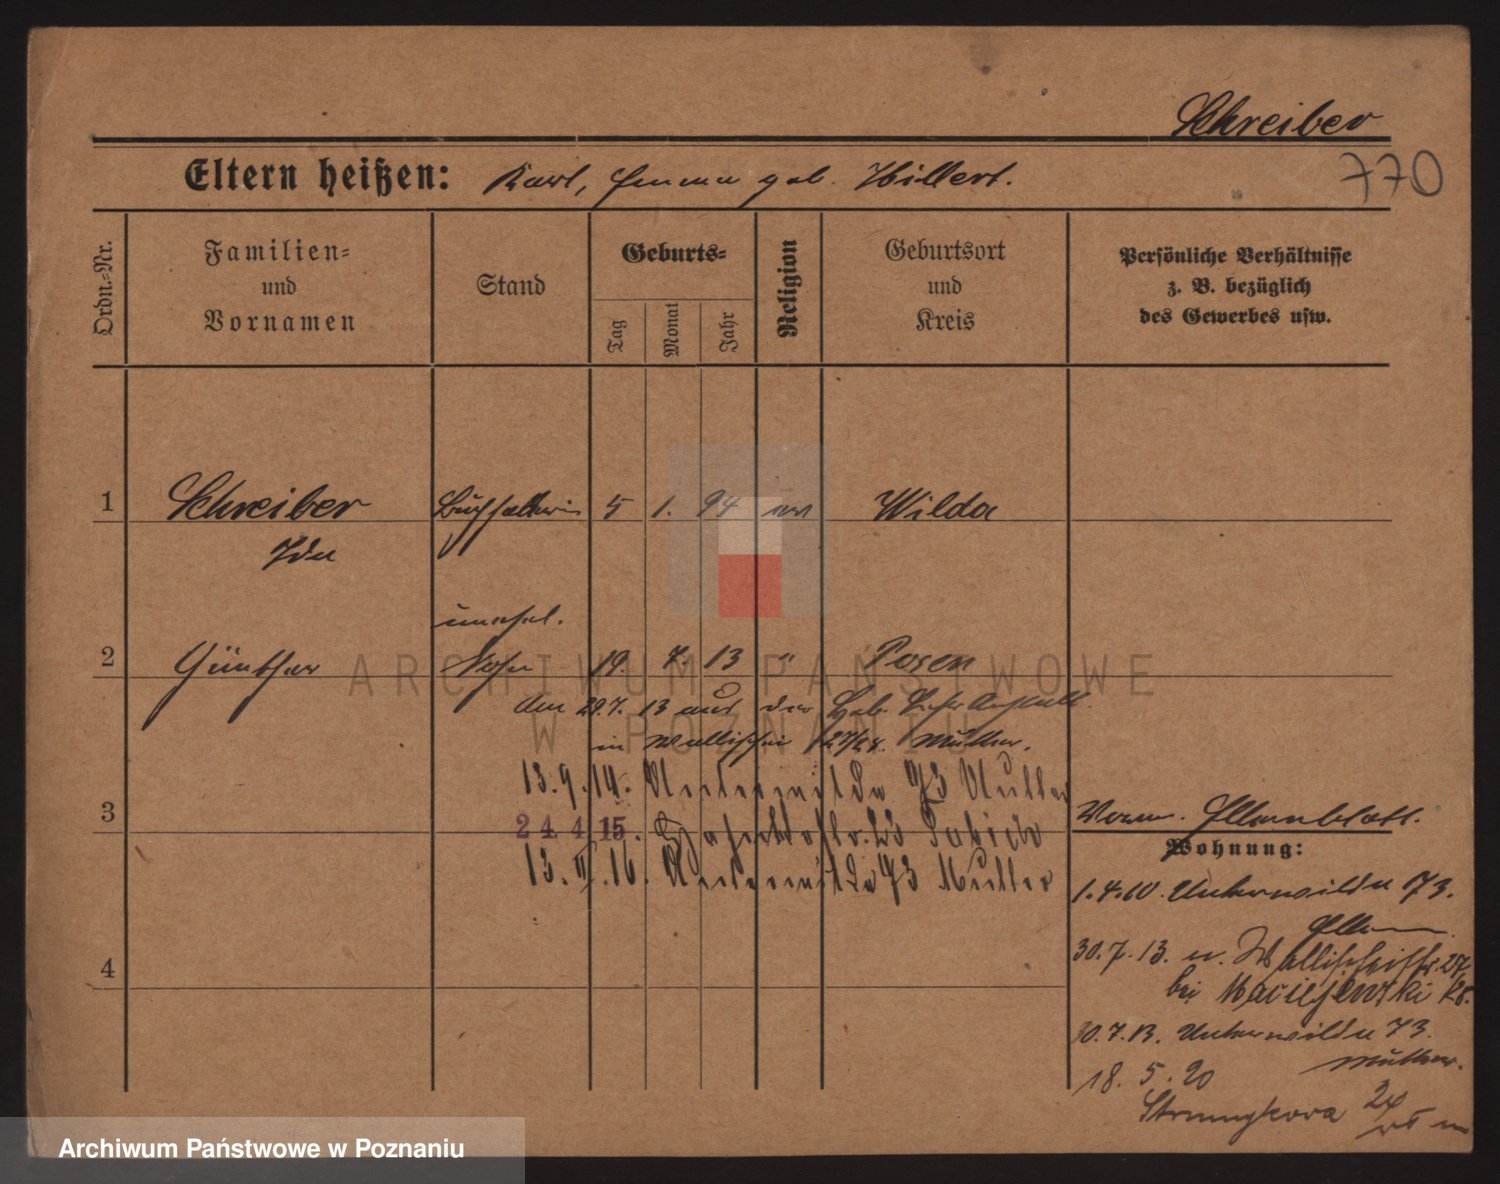 Schreiber
770
Eltern heißen: Karl, Emma geb. Hillert.
Ordn.-Nr.
Familien-
und
Vornamen
Stand
Geburts-
Tag
Monat
Jahr
Religion
Geburtsort
und
Kreis
Persönliche Verhältnisse
z. B. bezüglich
des Gewerbes usw.
1 Schreiber Buchhalterin 5 1. 94 ev Wilda
Ida
unehel.
2 Günther Sohn 19. 7. 13 " Posen
den 29.7. 13 aus der Heb. Lehr Anstalt
in Wallischei 27/28. Mutter.
13.9.14. Unterwilda 73 Mutter
3 24. 4 15.
13. 16. Unterwilda 73 Mutter
4
Verm. Elternblatt.
Wohnung:
1.4.10. Unterwilda 73.
Eltern
30.7.13. n. Wallischeistr. 27.
bei Maciejewski
30.7.13. Unterwilda 73.
Mutter.
18. 5. 20
24
ARCHIWUM PAŃSTWOWE
W POZNANIU
Archiwum Państwowe w Poznaniu